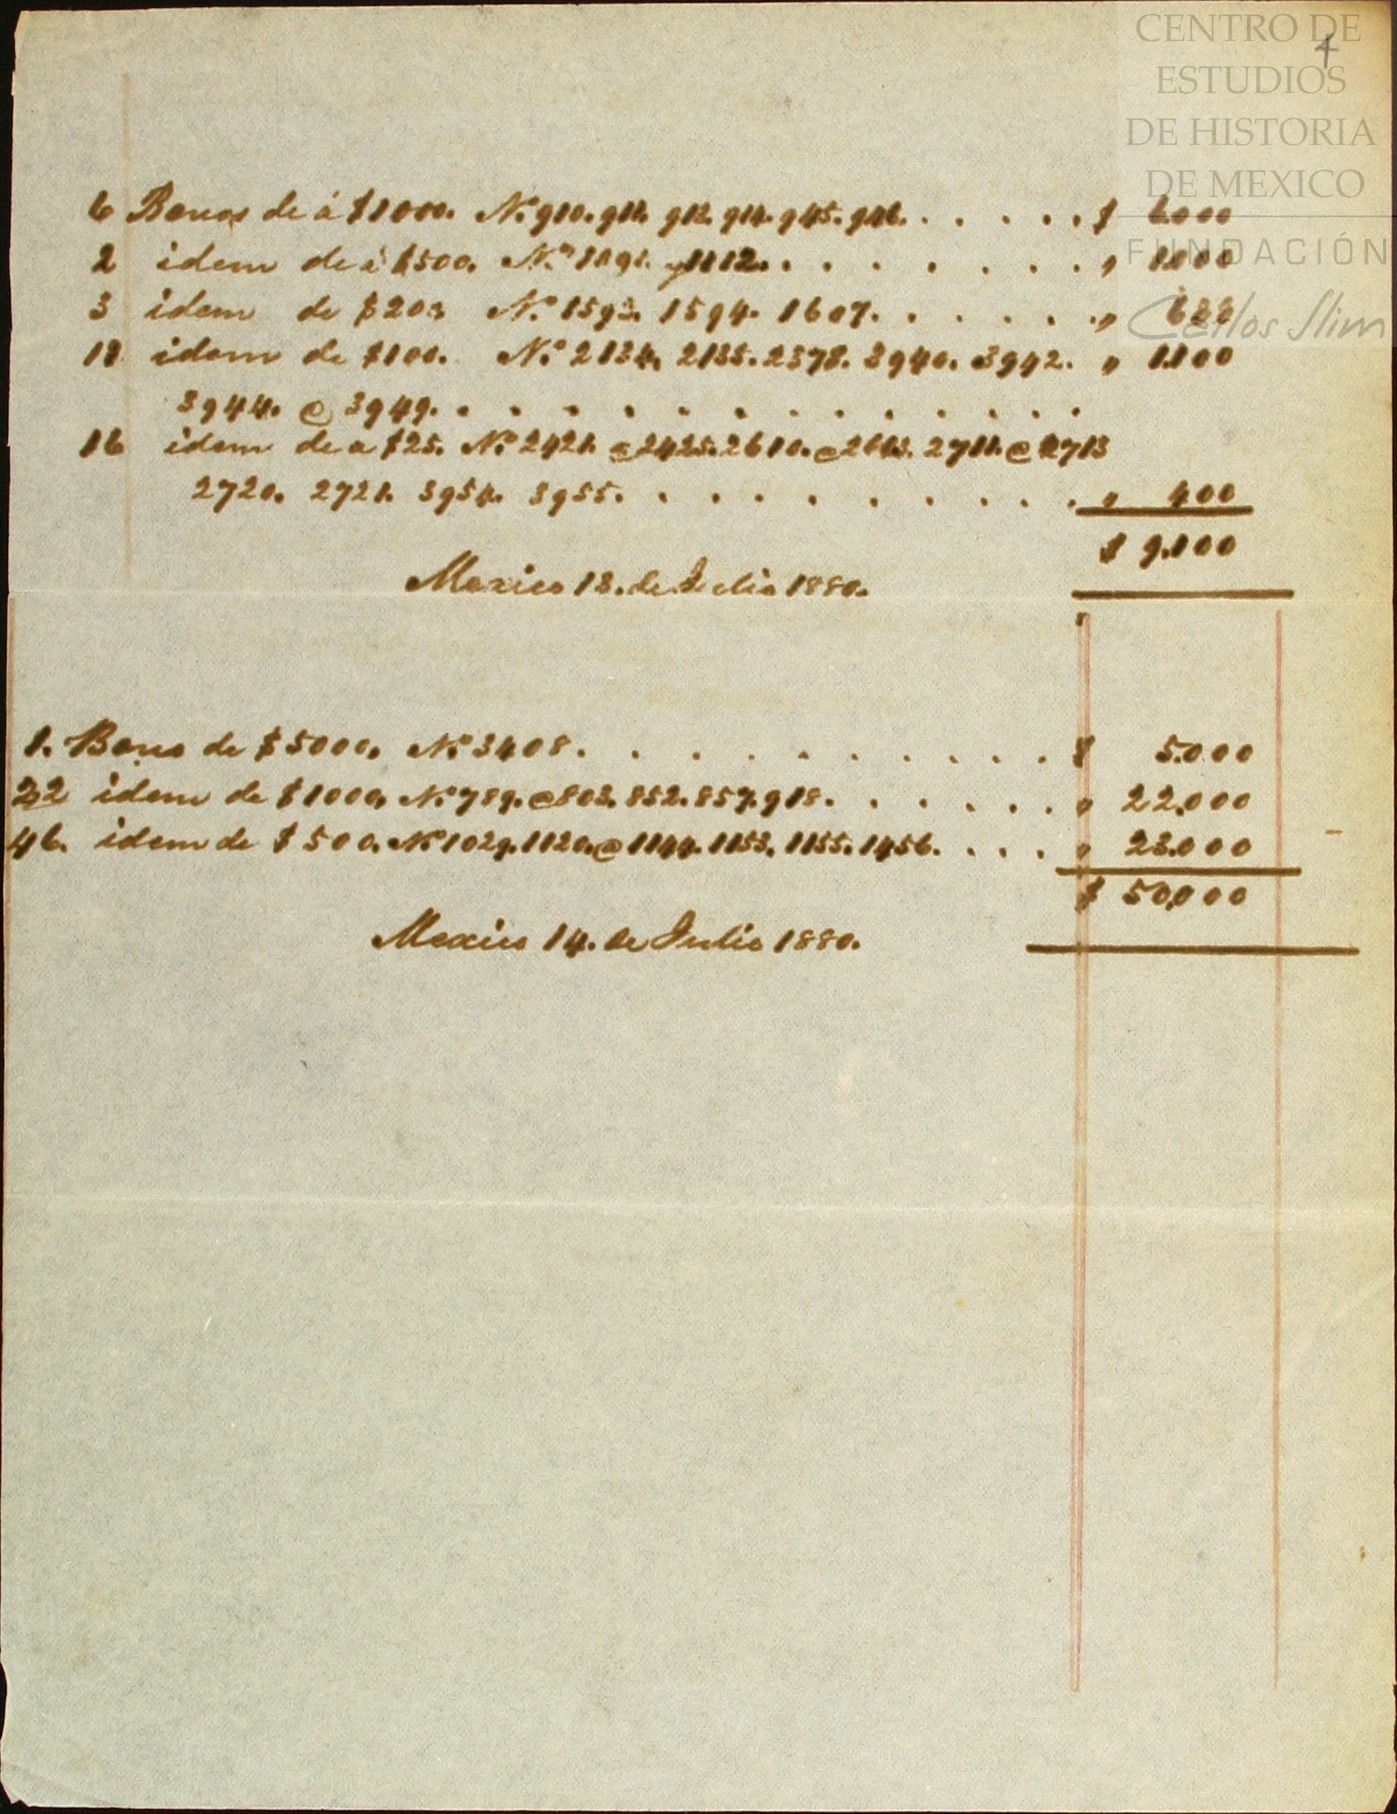 CENTRO DE
ESTUDIOS
DE HISTORIA
DE MEXICO
FUNDACIÓN
Carlos Slim
4
6 Bonos de á $1000. Nº 910. 911. 912. 914. 945. 946. . . . . . $ 6.000
2 idem de á $500. Nº 1091. y 1112. . . . . . . . . „ 1.000
3 idem de $200 Nº 1593. 1594. 1607. . . . . . „ 600
11 idem de $100. Nº 2134. 2135. 2378. 3940. 3942. „ 1.100
3944. @ 3949. . . . . . . . . . . . .
16 idem de a $25. Nº 2421. @ 2425. 2610. @ 2613. 2711. @ 2713
2720. 2721. 3954. 3955. . . . . . . . . . „ 400
$ 9.100
Mexico 13. de Julio 1880.
1. Bono de $5000. Nº 3408. . . . . . . . . . $ 5.000
22 idem de $1000. Nº 789. @ 803. 852. 857. 918. . . . . . „ 22.000
46. idem de $500. Nº 1029. 1120. @ 1144. 1153. 1155. 1456. . . . „ 23.000
$ 50,000
Mexico 14. de Julio 1880.